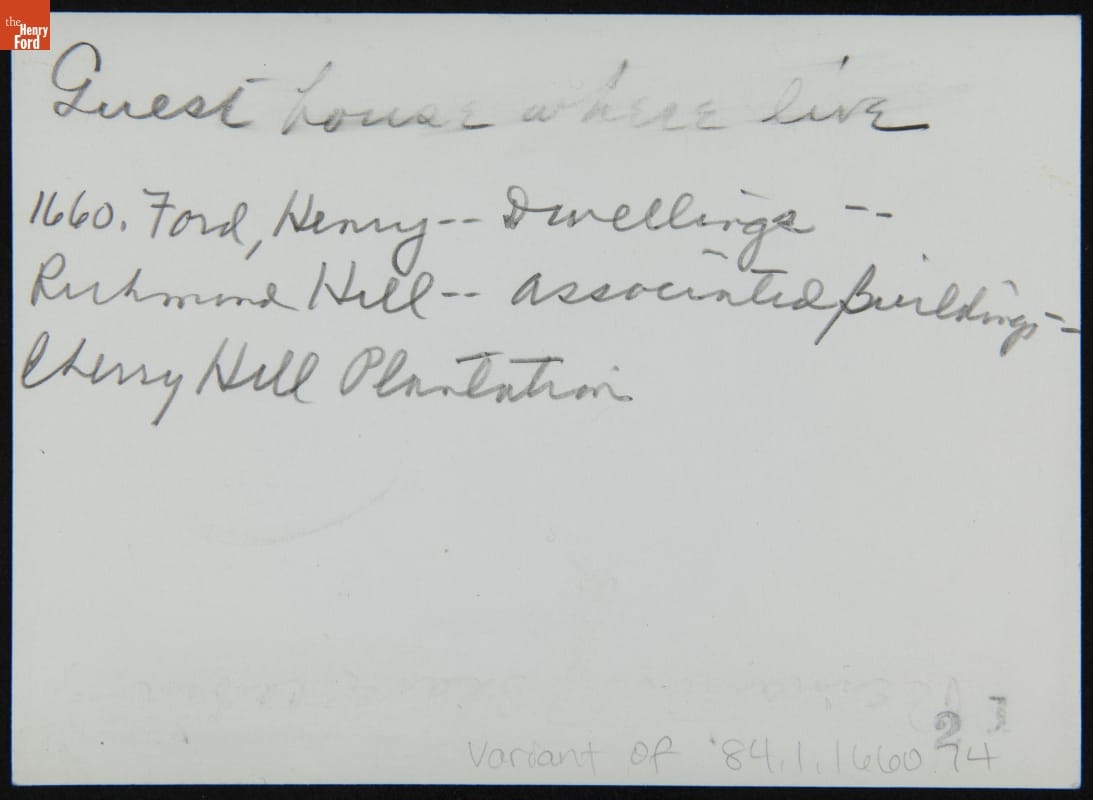 the Henry Ford
Guest house where live
1660. Ford, Henry-- Dwellings --
Richmond Hill-- Associated Buildings--
Cherry Hill Plantation
21
Variant of '84.1.1660.74